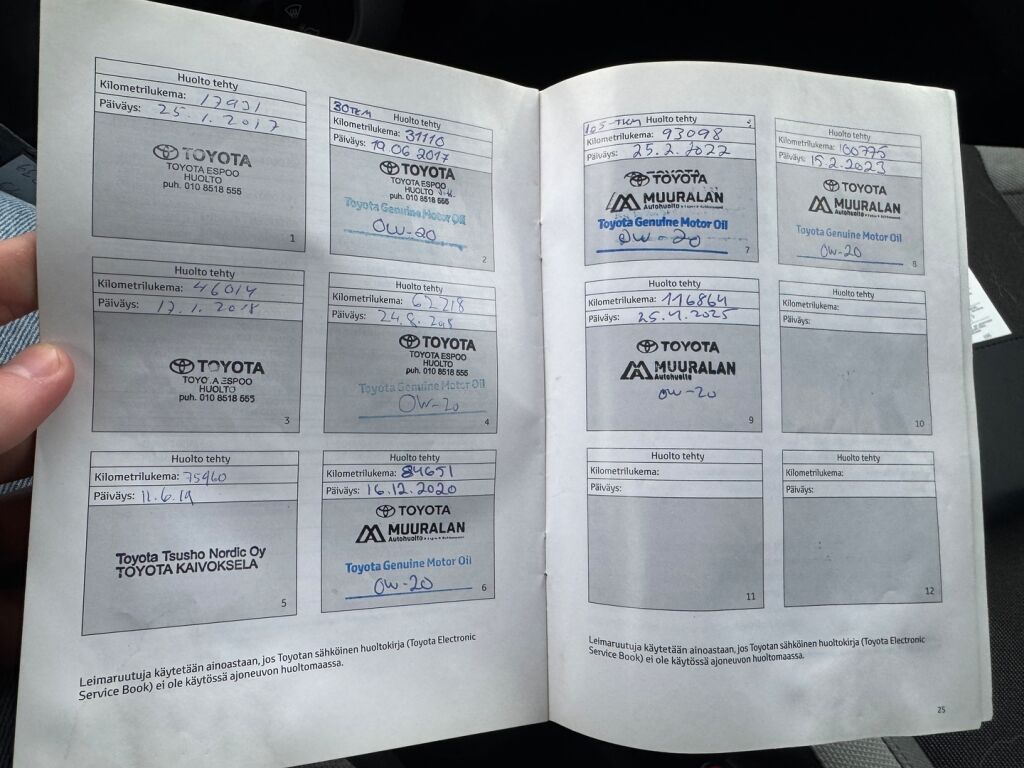 Huolto tehty
Kilometrilukema: 17931
Päiväys: 25.1.2017
TOYOTA
TOYOTA ESPOO
HUOLTO
puh. 010 8518 555
1
30TKM
Huolto tehty
Kilometrilukema: 31110
Päiväys: 19 06 2017
TOYOTA
TOYOTA ESPOO
HUOLTO
puh. 010 8518 555
Toyota Genuine Motor Oil
0W-20
2
Huolto tehty
Kilometrilukema: 46014
Päiväys: 12.1.2018
TOYOTA
TOYOTA ESPOO
HUOLTO
puh. 010 8518 555
3
Huolto tehty
Kilometrilukema: 62218
Päiväys: 24.8.2018
TOYOTA
TOYOTA ESPOO
HUOLTO
puh. 010 8518 555
Toyota Genuine Motor Oil
0W-20
4
Huolto tehty
Kilometrilukema: 75460
Päiväys: 11.6.19
Toyota Tsusho Nordic Oy
TOYOTA KAIVOKSELA
5
Huolto tehty
Kilometrilukema: 84651
Päiväys: 16.12.2020
TOYOTA
MUURALAN
Autohuolto
Toyota Genuine Motor Oil
0W-20
6
Leimaruutuja käytetään ainoastaan, jos Toyotan sähköinen huoltokirja (Toyota Electronic
Service Book) ei ole käytössä ajoneuvon huoltomaassa.
105-TKM Huolto tehty
Kilometrilukema: 93098
Päiväys: 25.2.2022
TOYOTA
MUURALAN
Autohuolto
Toyota Genuine Motor Oil
0W-20
7
Huolto tehty
Kilometrilukema: 100775
Päiväys: 15.2.2023
TOYOTA
MUURALAN
Autohuolto
Toyota Genuine Motor Oil
0W-20
8
Huolto tehty
Kilometrilukema: 116864
Päiväys: 25.4.2025
TOYOTA
MUURALAN
Autohuolto
0W-20
9
Huolto tehty
Kilometrilukema:
Päiväys:
10
Huolto tehty
Kilometrilukema:
Päiväys:
11
Huolto tehty
Kilometrilukema:
Päiväys:
12
Leimaruutuja käytetään ainoastaan, jos Toyotan sähköinen huoltokirja (Toyota Electronic
Service Book) ei ole käytössä ajoneuvon huoltomaassa.
25